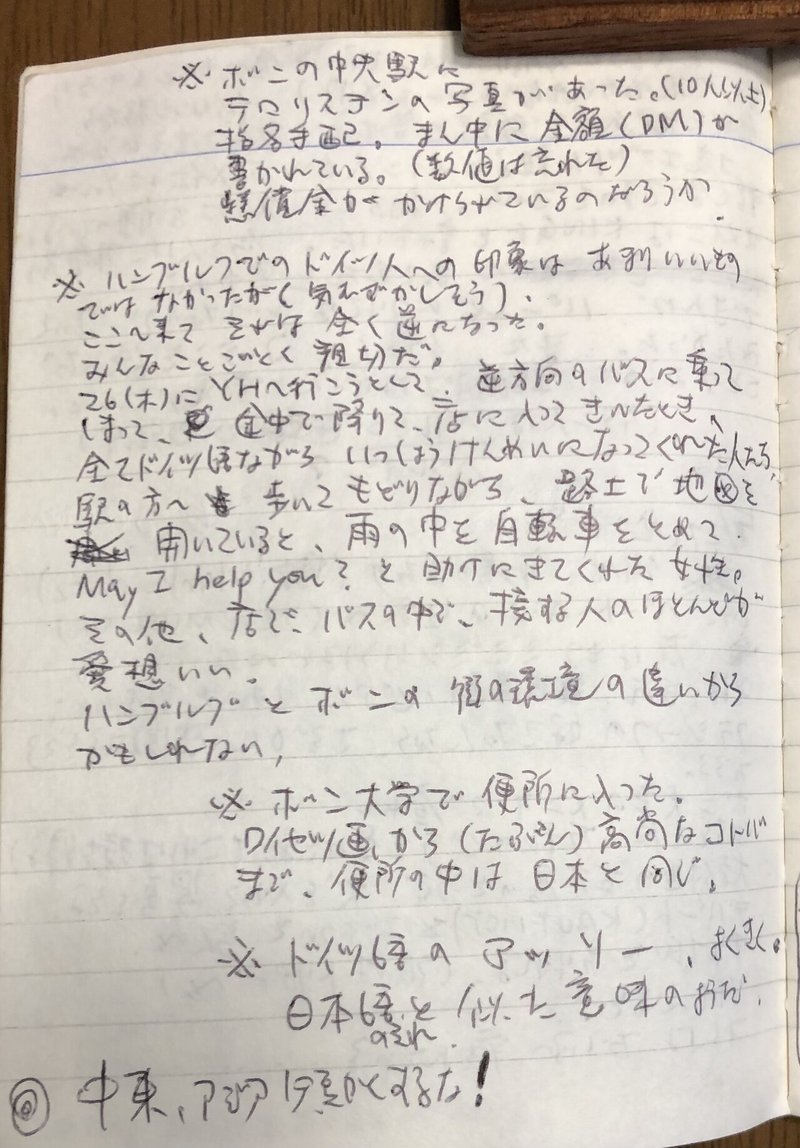 ※ ボンの中央駅に
テロリステンの写真があった。(10人以上)
指名手配。まん中に金額(DM)が
書かれている。(数値は忘れた)
懸償金がかけられているのなろうか.
※ ハンブルクでのドイツ人への印象はあまりいいもの
ではなかったが(気むずかしそう)、
ここへ来てそれは全く逆になった。
みんなことごとく親切だ。
26(木)にYHへ行こうとして、逆方向のバスに乗って
しまって、途中で降りて、店に入ってきいたとき、
全てドイツ語ながらいっしょうけんめいになってくれた人たち、
駅の方へ歩いてもどりながら、路上で地図を
開いていると、雨の中を自転車をとめて.
May I help you? と助けにきてくれた女性。
その他、店で、バスの中で、接する人のほとんどが
愛想いい。
ハンブルグとボンの街の環境の違いから
かもしれない,
※ ボン大学で便所に入った。
ワイセツ画から(たぶん)高尚なコトバ
まで、便所の中は日本と同じ。
※ ドイツ語のアッソー、よくきく。
日本語のそれと似た意味のようだ.
◎ 中東、アジア
するな!